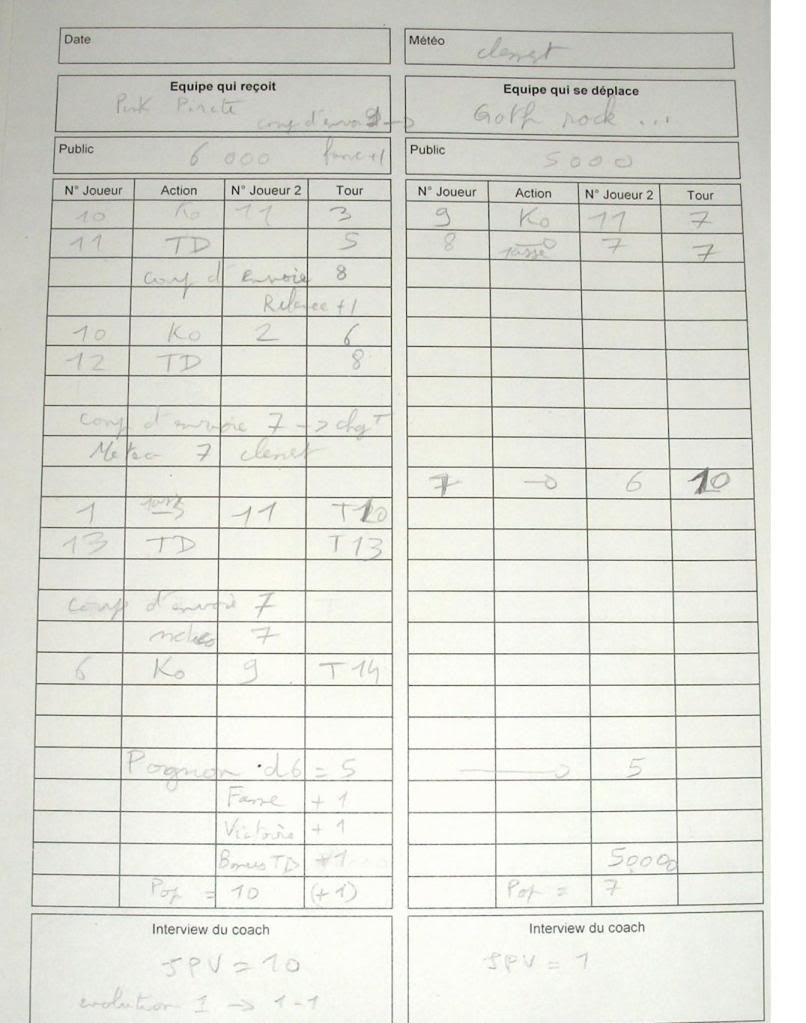 Date
Météo clemet
Equipe qui reçoit
Pink Pirate
coup d'envoi 9 ->
Equipe qui se déplace
Goth rock ...
Public 6 000 fame +1
Public 5000
N° Joueur Action N° Joueur 2 Tour
10 Ko 11 3
11 TD 5
coup d'envoie 8
Relance +1
10 Ko 2 6
12 TD 8
coup d'envoie 7 -> chgT
Meteo 7 clemet
1 11 T10
13 TD T13
coup d'envoie 7
meteo 7
6 Ko 9 T14
Pognon d6 = 5
Fame +1
Victoire +1
Bonus TD +1
Pop = 10 (+1)
Interview du coach
JPV = 10
evolution 1 -> 1-1
N° Joueur Action N° Joueur 2 Tour
9 Ko 11 7
8 passe 7 7
7 -o 6 10
5
5000
Pop = 7
Interview du coach
JPV = 1